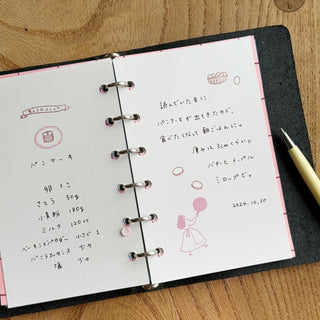 パンケーキ
卵 2こ
さとう 50g
小麦粉 180g
ミルク 120cc
ベーキングパウダー 小さじ1
バニラエッセンス 少々
塩 少々
読んでいた本に
パンケーキが出てきたので、
食べたくなって朝ごはんに。
厚みは3cmぐらい。
バターと メープル
シロップで。
2024.10.30